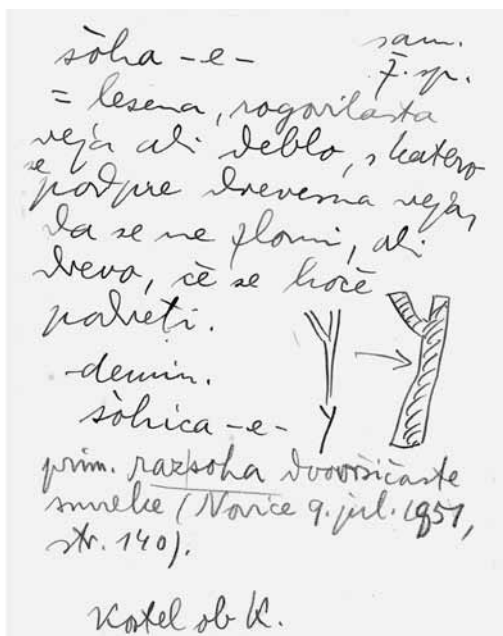 sòha -e- sam.
ž. sp.
= lesena, rogovilasta
veja ali deblo, s katero
se podpre drevesna veja,
da se ne zlomi, ali
drevo, če se hoče
podreti.
-demin.
sòhica -e-
prim. razsoha dvovršičaste
smreke (Novice 9. jul. 1851,
str. 140).
Kostel ob K.